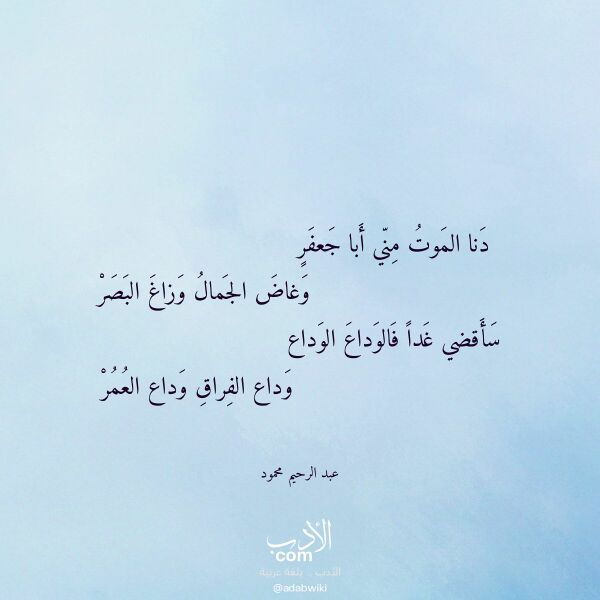 دَنا المَوتُ مِنّي أَبا جَعفَرٍ
وَغاضَ الجَمالُ وَزاغَ البَصَرْ
سَأَقضي غَداً فَالوَداعَ الوَداع
وَداع الفِراقِ وَداع العُمُرْ
عبد الرحيم محمود
الأدب
com
الأدب .. بلغة عربية
@adabwiki